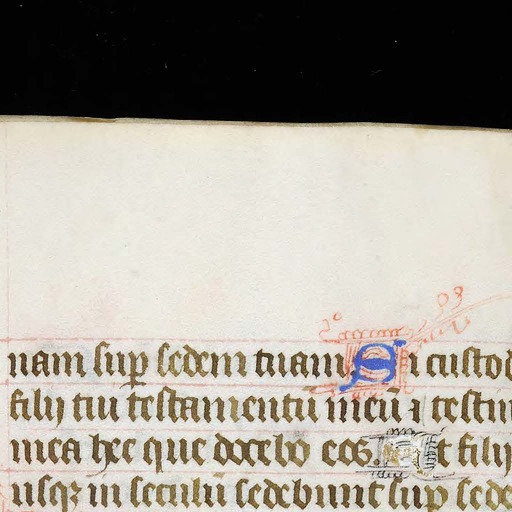 nam sup̲ sedem tuam Si custod
filij tui testamentū meū ⁊ testim
mea hec que docebo eos Et filij
usqꝫ in seculū sedebunt sup̲ sede